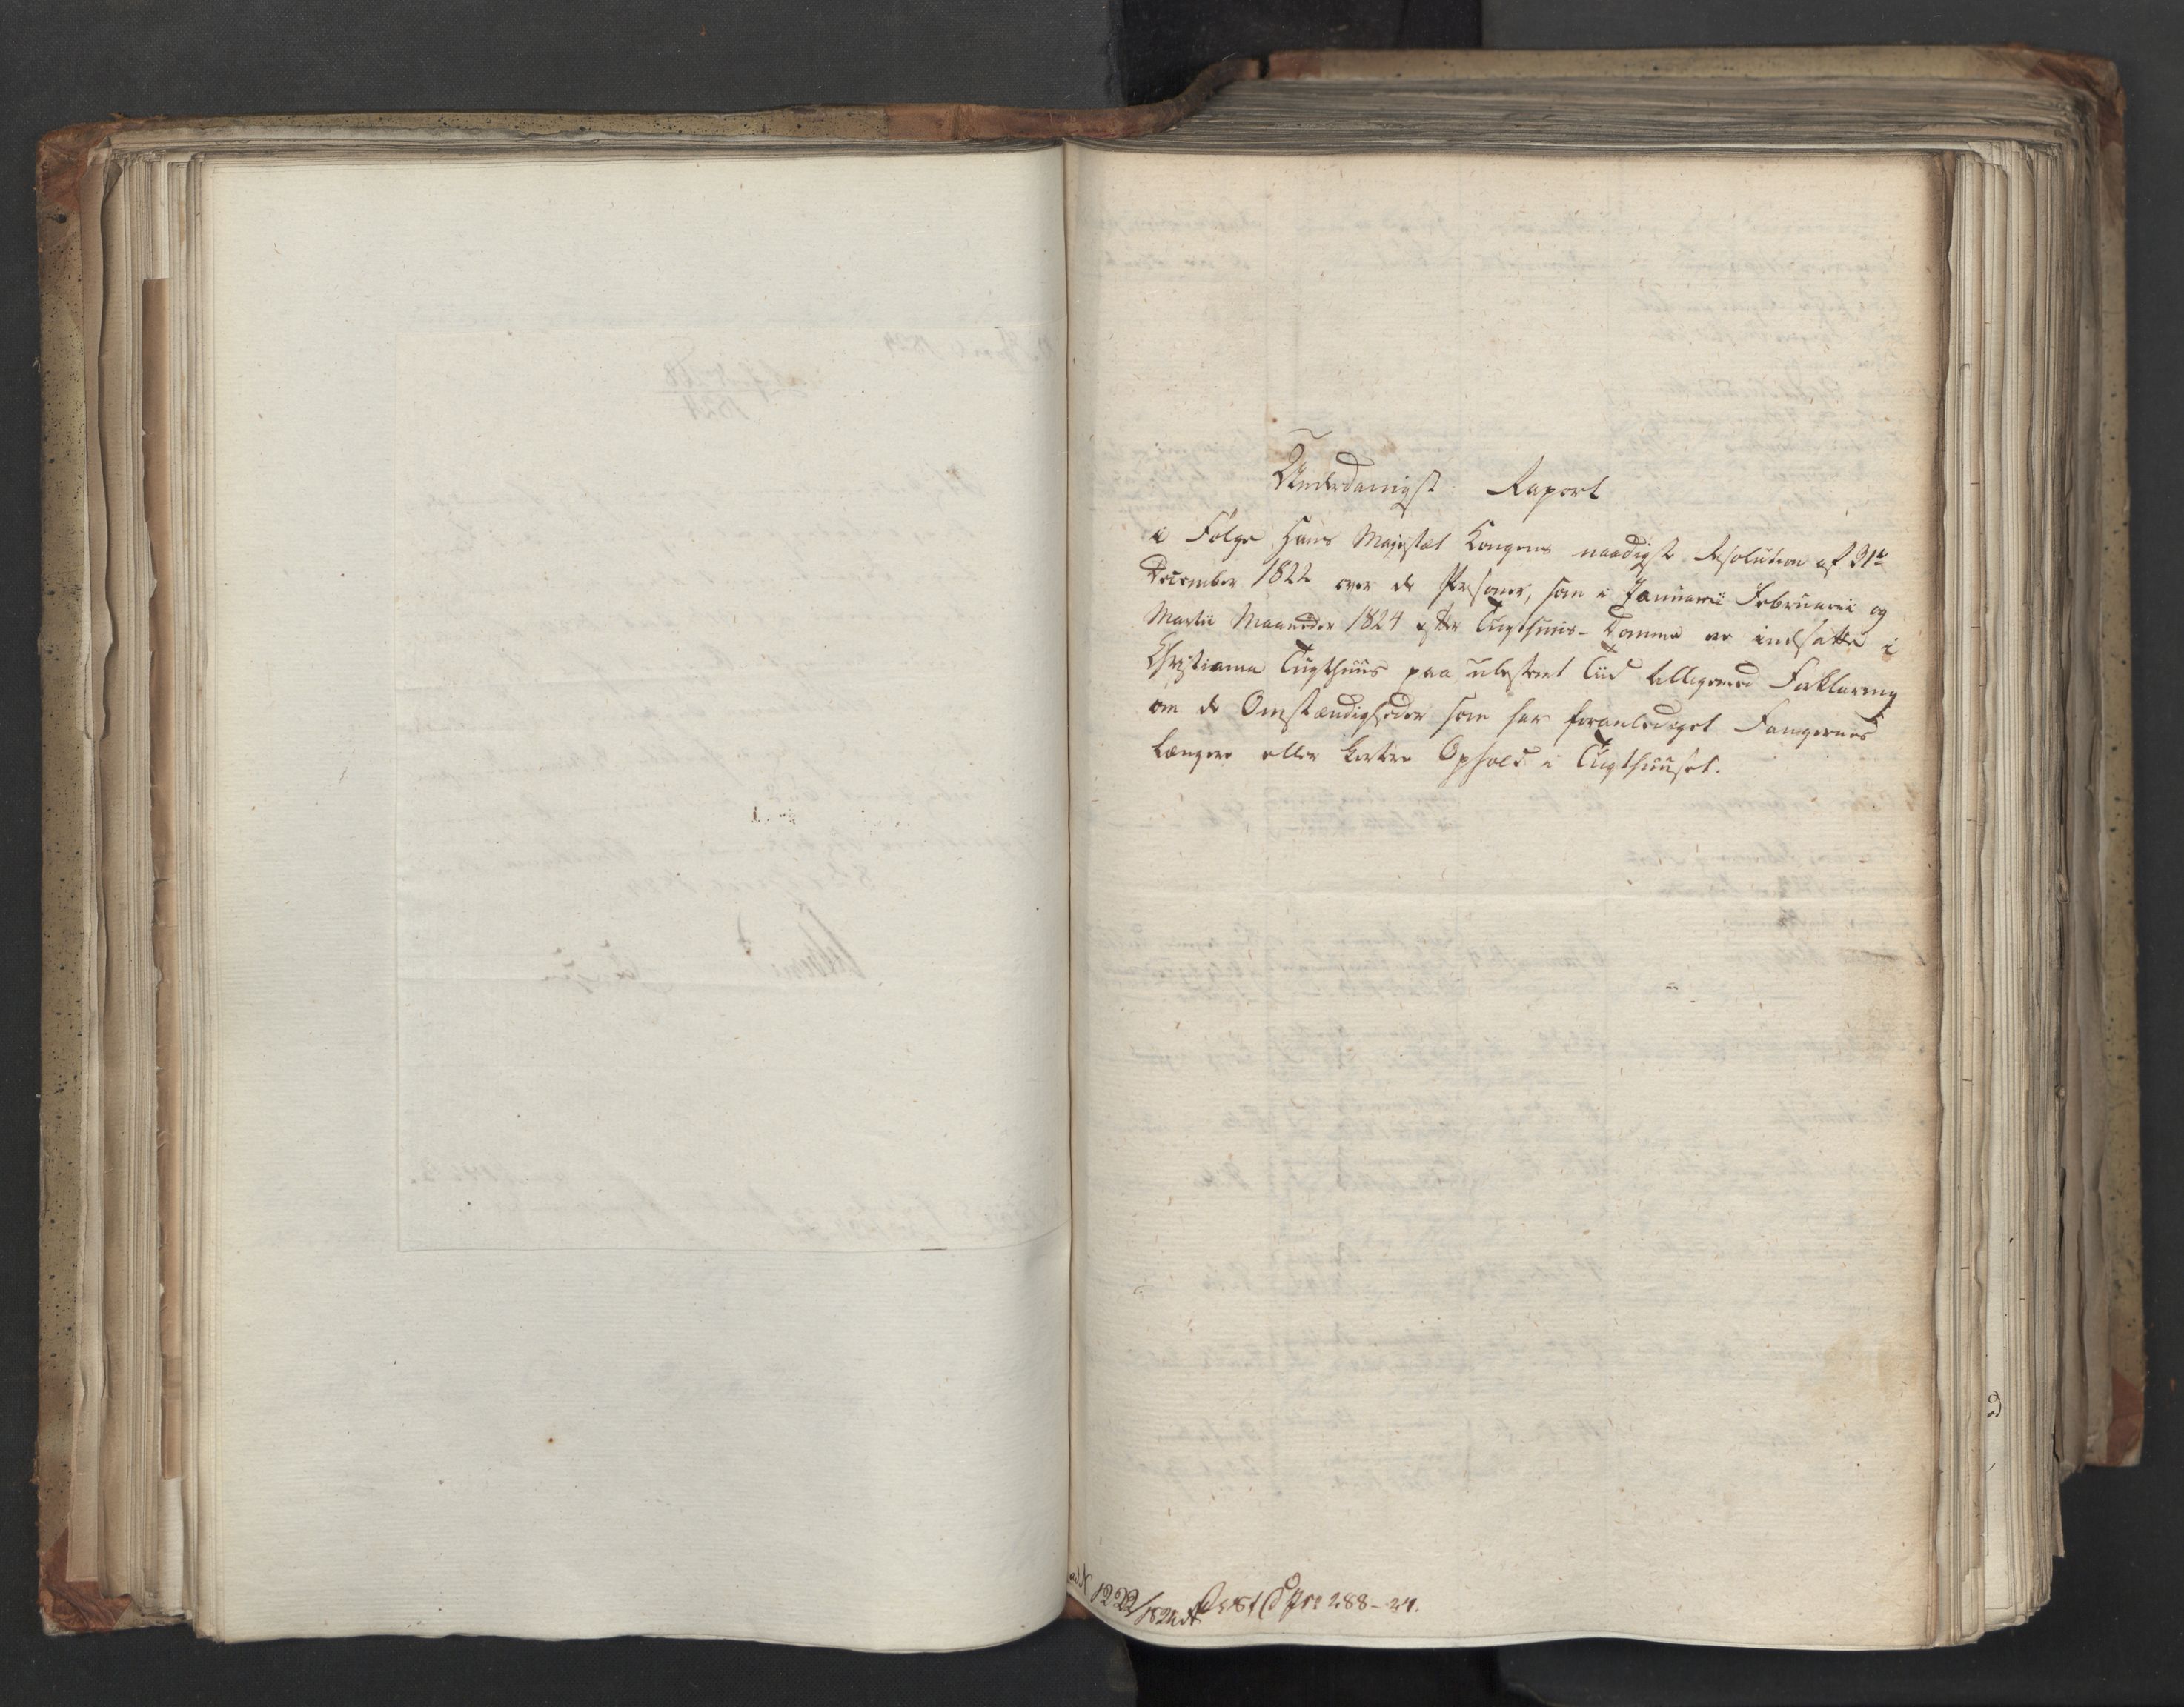 Underdanigst Raport
i Følge Hans Majestæt Kongens naadigste Resolution af 31te
December 1822 over de Personer, som i Januarii Februarii og
Martii Maaneder 1824 efter Tugthuus-Domme ere indsatte i
Christiania Tugthuus paa ubestemt Tiid tilligemed Forklaring
om de Omstændigheder som har foranlediget Fangernes
længere eller kortere Ophold i Tugthuuset.
1222/1824 A 288-24.